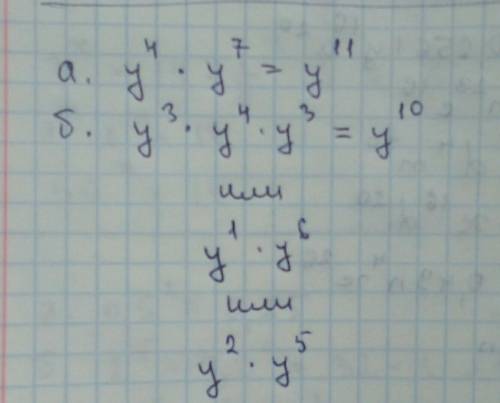 а. y⁴ · y⁷ = y¹¹
б. y³ · y⁴ · y³ = y¹⁰
или
y¹ · y⁶
или
y² · y⁵